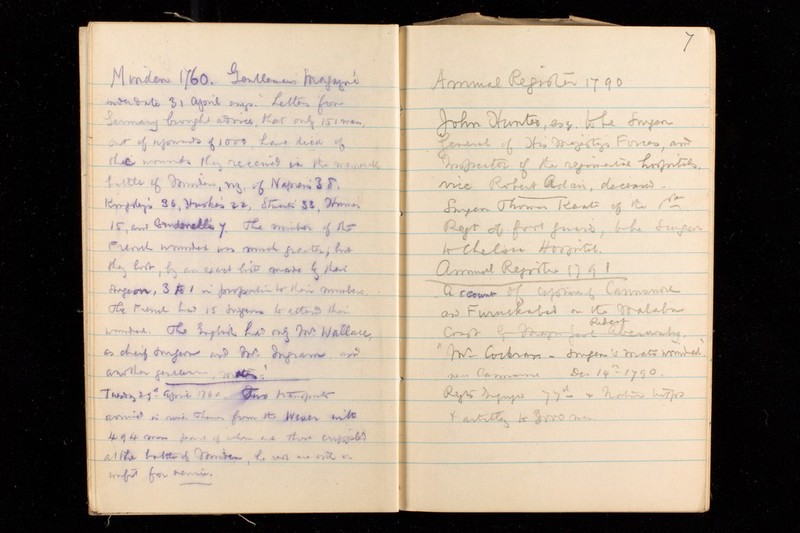 Minden 1760. Gentleman's Magazine
under date 31 April says: Letters from
Germany brought advices, that only 151 men,
out of upwards of 1000 have died of
the wounds they received in the memorable
battle of Minden, viz. of Napier's 38,
Kingsley's 36, 22, Stuart's 33, Home's
15, and 7. The number of the
French wounded was much greater, but
they lost, by an exact list made by their
surgeons, 3 to 1 in proportion to their number.
The French had 15 surgeons to attend their
wounded. The English had only Mr Wallace,
as chief surgeon and Mr. Ingram and
another gentleman, mates."
Tuesday 29th April 1760. Two transports
arrived in river Thames from the Weser with
494 men, some of whom are those crippled
at the battle of Minden, the rest are with or
unfit for service.
7
Annual Register 1790
John Hunter, esq. to be Surgeon
General of His Majesty's Forces, and
Inspector of the regimental hospitals.
vice Robert Adair, deceased.
Surgeon Thomas Keate of the 1st
Regt of foot guards, to be Surgeon
to Chelsea Hospital.
Annual Register 1791
Account of capturing Cannanore
and on the Malabar
Coast by Major Genl Robert Abercromby.
"Mr. Cochrane - Surgeon's mate wounded".
near Cannanore Dec 14th 1790.
Regts engaged 77th & Native Inftry
& artillery to 3000 men